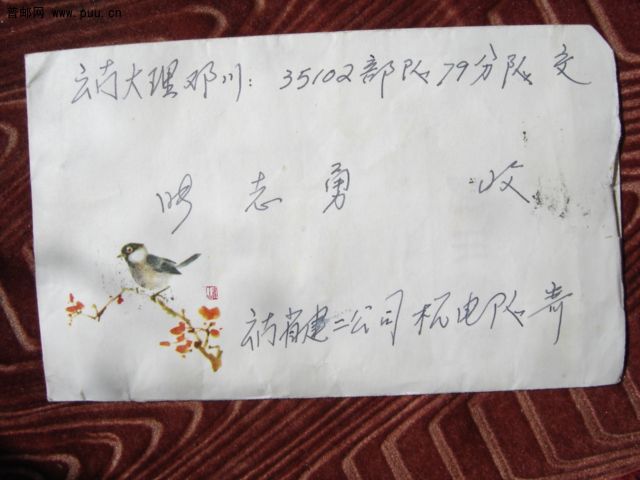 普邮网 www.puu.cn
云南大理邓川: 35102部队79分队 交
志勇 收
云南省建二公司机电队寄